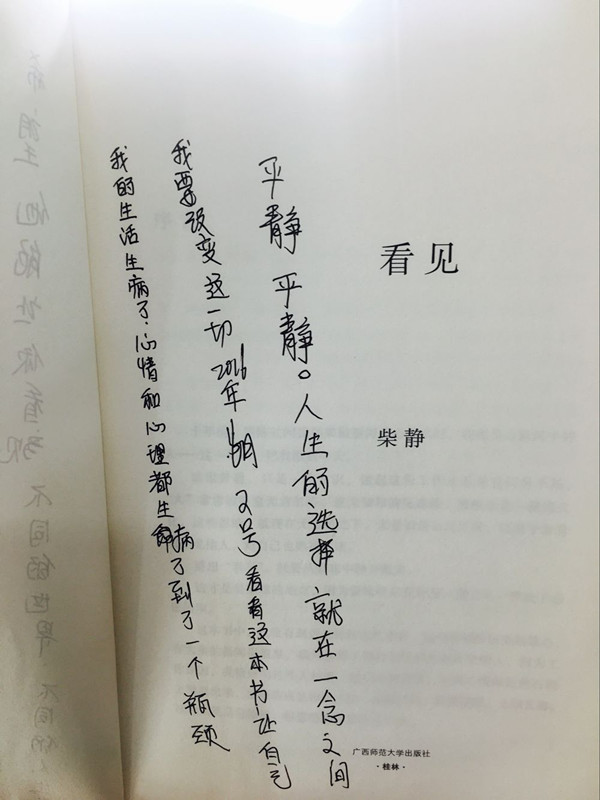 看见
柴静
广西师范大学出版社
·桂林·
平静 平静。人生的选择就在一念之间
我要改变这一切 2016年11月2号看看这本书让自己
我的生活生病了.心情和心理都生病了到了一个瓶颈